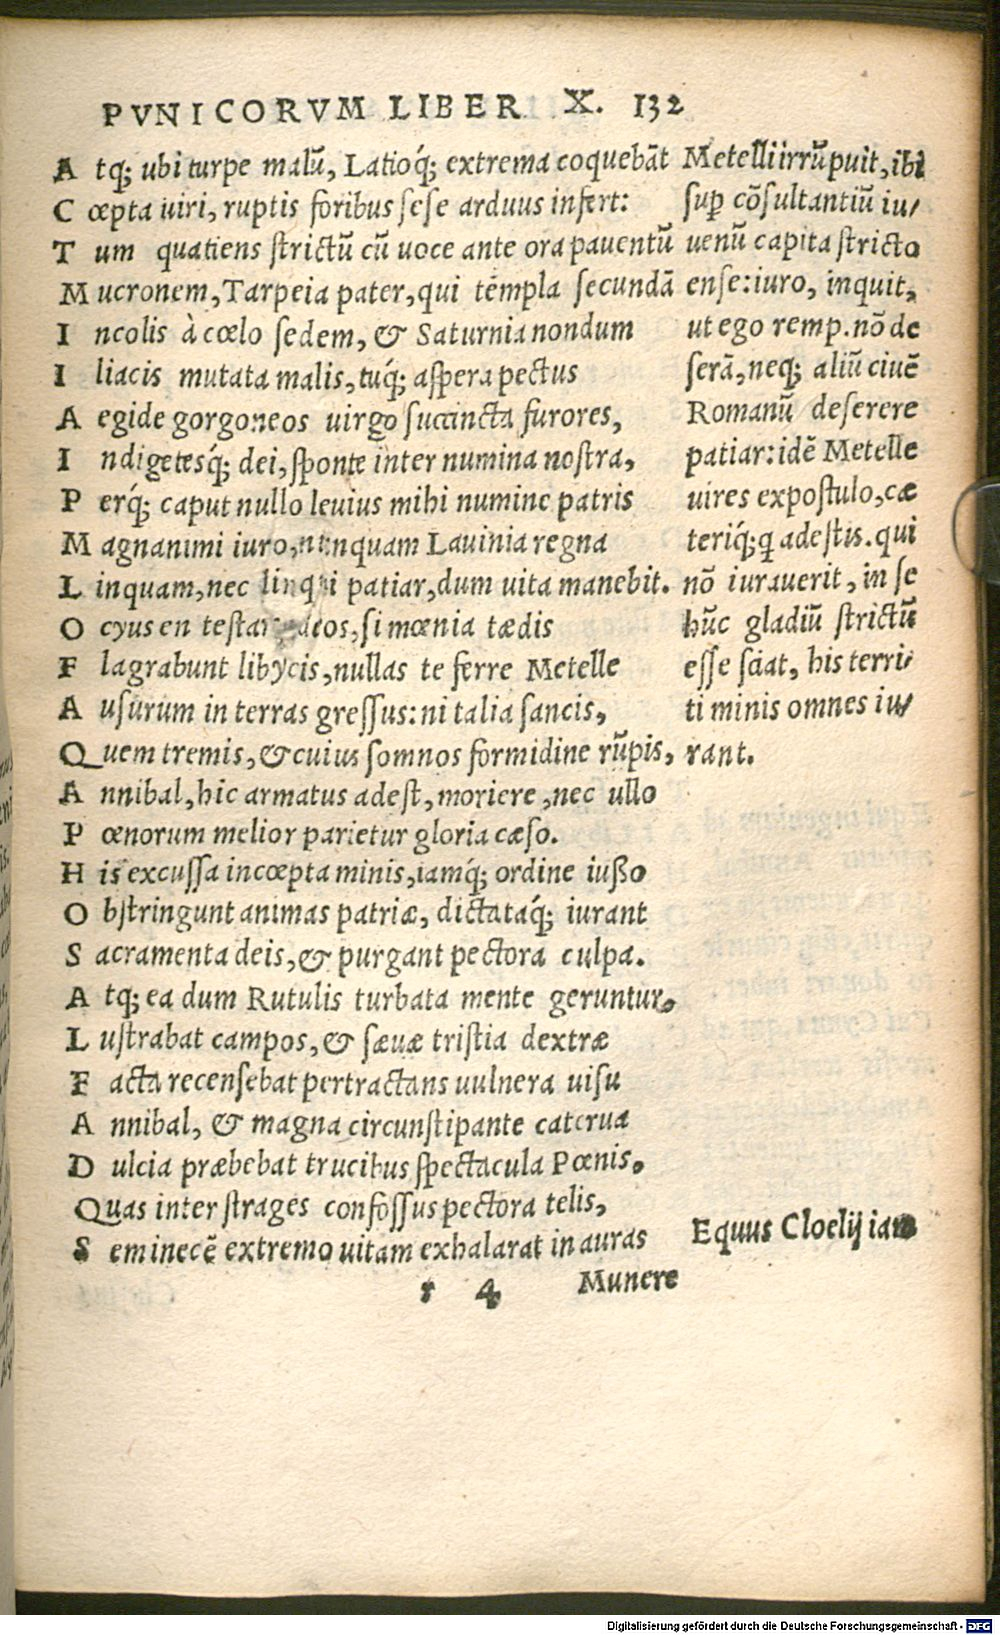 PVNICORVM LIBER X. 132
A tq; ubi turpe malũ, Latioq́; extrema coquebãt
C œpta uiri, ruptis foribus sese arduus infert:
T um quatiens strictũ cũ uoce ante ora pauentũ
M ucronem, Tarpeia pater, qui tẽmpla secundã
I ncolis à cœlo sedem, & Saturnia nondum
I liacis mutata malis, tuq́; aspera pectus
A egide gorgoneos uirgo succincta furores,
I ndigetesq́; dei, sponte inter numina nostra,
P erq́; caput nullo leuius mihi numine patris
M agnanimi iuro, nunquam Lauinia regna
L inquam, nec linqui patiar, dum uita manebit.
O cyus en testare deos, si mœnia tædis
F lagrabunt libycis, nullas te ferre Metelle
A usurum in terras gressus: ni talia sancis,
Q uem tremis, & cuius somnos formidine rũpis,
A nnibal, hic armatus adest, moriere, nec ullo
P œnorum melior parietur gloria cæso.
H is excussa incœpta minis, iamq́; ordine iußo
O bstringunt animas patriæ, dictataq́; iurant
S acramenta deis, & purgant pectora culpa.
A tq; ea dum Rutulis turbata mente geruntur.
L ustrabat campos, & sæuæ tristia dextræ
F acta recensebat pertractans uulnera uisu
A nnibal, & magna circunstipante caterua
D ulcia præbebat trucibus spectacula Pœnis.
Q uas inter strages confossus pectora telis,
S eminecẽ extremo uitam exhalarat in auras
r 4 Munere
Metelli irrũpuit, ibi
sup cõsultantiũ iu/
uenũ capita stricto
ense: iuro, inquit,
ut ego remp. nõ de
serã, neq; aliũ ciuẽ
Romanũ deserere
patiar: idẽ Metelle
uires expostulo, cæ
teriq́; q adestis. qui
nõ iurauerit, in se
hũc gladiũ strictũ
esse sciat, his terri/
ti minis omnes iu/
rant.
Equus Cloelij iam
Digitalisierung gefördert durch die Deutsche Forschungsgemeinschaft - DFG